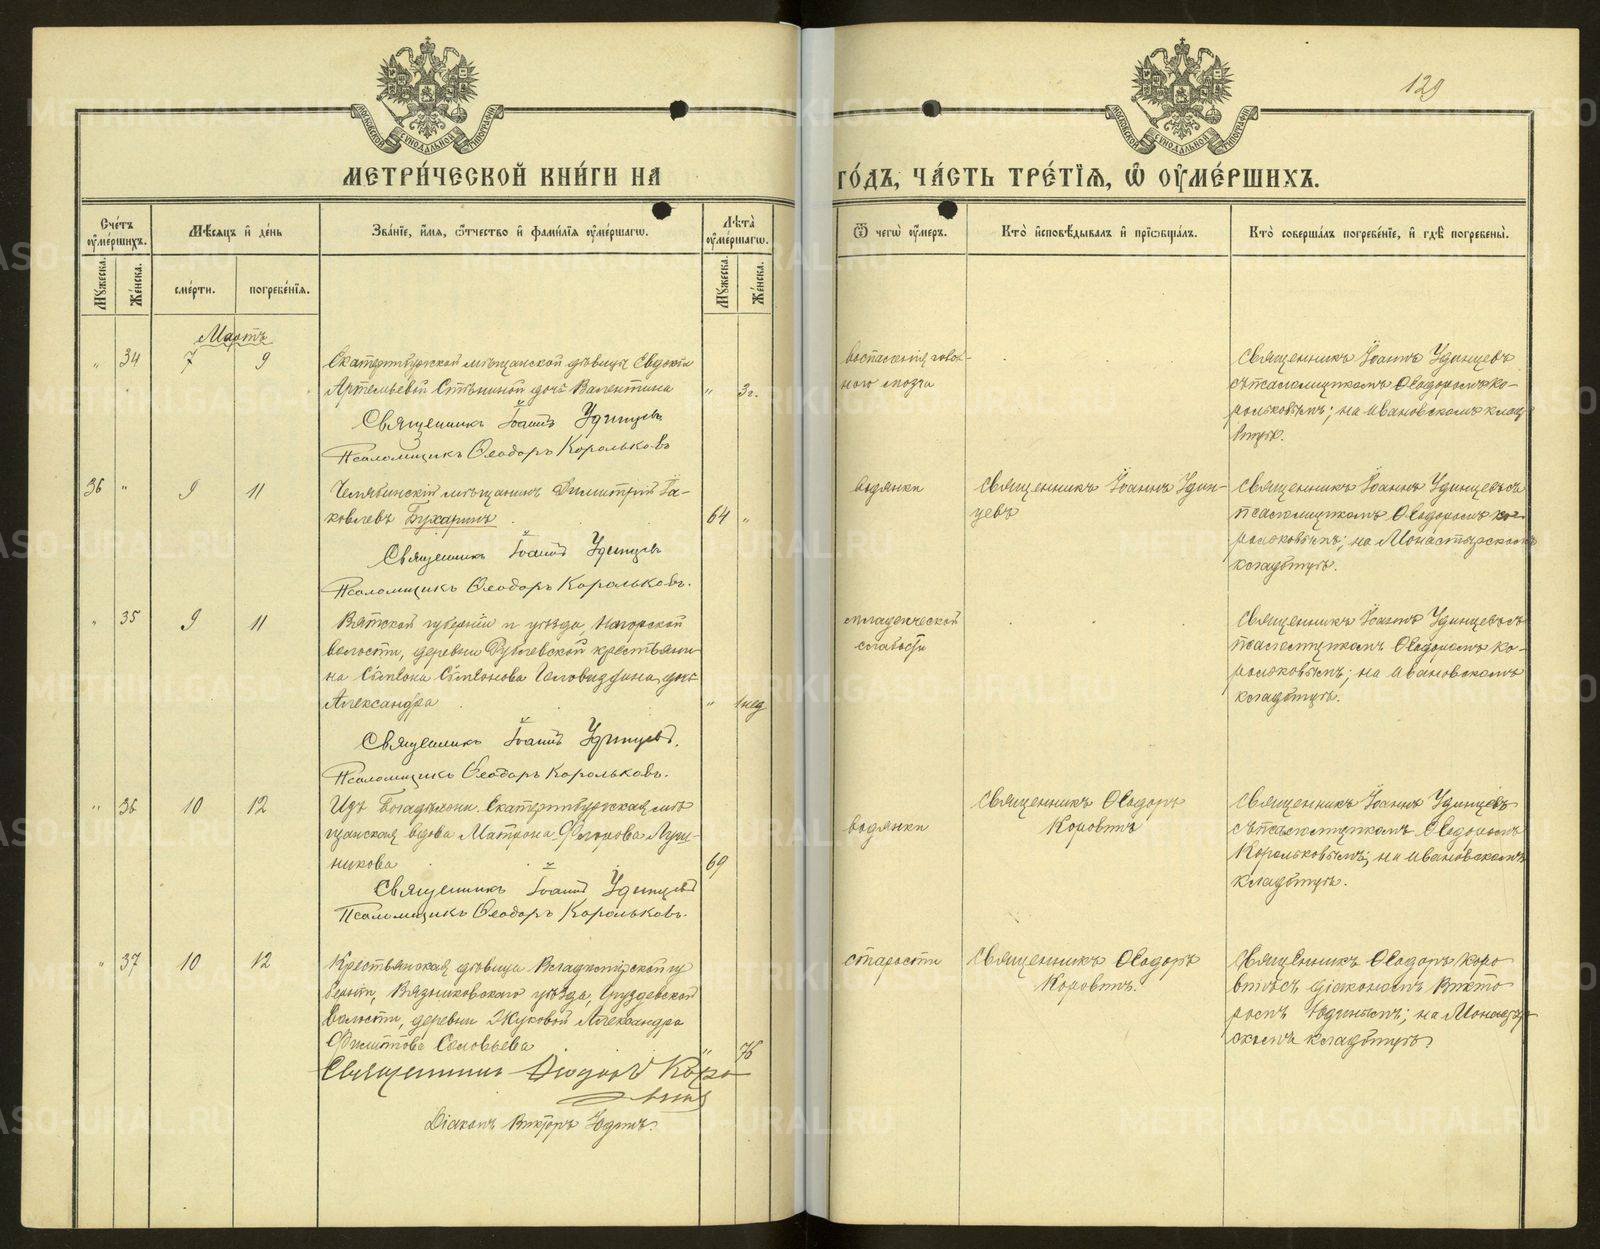 129
МОСКОВСКОЙ СѴНОДАЛЬНОЙ ТИПОГРАФІИ
МОСКОВСКОЙ СѴНОДАЛЬНОЙ ТИПОГРАФІИ
МЕТРИ́ЧЕСКОЙ КНИ́ГИ НА
ГО́ДЪ, ЧА́СТЬ ТРЕ́ТІѦ, Ѡ ОУМЕ́РШИХЪ.
Сче́тъ оуме́ршихъ.
Мѣ́сяцъ и҆ де́нь
Зва́ніе, и҆́мя, ѻ҆́тчество и҆ фами́лія оуме́ршагѡ.
Лѣта̀ оуме́ршагѡ.
Ѿ чегѡ̀ оу́меръ.
Кто̀ и҆сповѣ́дывалъ и҆ прїѡбща́лъ.
Кто̀ соверша́лъ погребе́ніе, и҆ гдѣ̀ погребены̀.
Му́жеска.
Же́нска.
сме́рти.
погребе́нія.
Му́жеска.
Же́нска.
Мартъ
" 34 7 9
Екатеринбургской мѣщанской дѣвицы Евдокіи
Артемьевой Стениной дочь Валентина
" 3 г.
Священникъ Іоаннъ Удинцевъ
Псаломщикъ Ѳеодоръ Корольковъ
воспаленія голов-
ного мозга
Священникъ Іоаннъ Удинцевъ
съ псаломщикомъ Ѳеодоромъ Ко-
рольковымъ; на Ивановскомъ клад
бищѣ.
36 " 9 11
Челябинскій мѣщанинъ Димитрій Іа-
ковлевъ Бухаринъ
64 "
Священникъ Іоаннъ Удинцевъ
Псаломщикъ Ѳеодоръ Корольковъ.
водянки
Священникъ Іоаннъ Удин-
цевъ
Священникъ Іоаннъ Удинцевъ съ
псаломщикомъ Ѳеодоромъ Ко-
рольковымъ; на Монастырскомъ
кладбищѣ.
" 35 9 11
Вятской губерніи и уѣзда, Нагорской
волости, деревни крестьяни-
на Симеона Симеонова дочь
Александра
" 1 нед
Священникъ Іоаннъ Удинцевъ.
Псаломщикъ Ѳеодоръ Корольковъ.
младенческой
слабости
Священникъ Іоаннъ Удинцевъ съ
псаломщикомъ Ѳеодоромъ Ко-
рольковымъ; на Ивановскомъ
кладбищѣ.
" 36 10 12
Изъ Богадѣльни. Екатеринбургская мѣ
щанская вдова Матрона Флорова Луш-
никова
69
Священникъ Іоаннъ Удинцевъ
Псаломщикъ Ѳеодоръ Корольковъ.
водянки
Священникъ Ѳеодоръ
Коровинъ
Священникъ Іоаннъ Удинцевъ
съ псаломщикомъ Ѳеодоромъ
Корольковымъ; на Ивановскомъ
кладбищѣ.
" 37 10 12
Крестьянская дѣвица Владимірской гу
берніи, Вязниковскаго уѣзда, Груздевской
волости, деревни Жуковой Александра
Филиппова Соловьева
" 76
Священникъ Ѳеодоръ Коро
винъ
Діаконъ Викторъ Юдинъ.
старости
Священникъ Ѳеодоръ
Коровинъ.
Священникъ Ѳеодоръ Коро
винъ съ діакономъ Викто
ромъ Юдинымъ; на Монастыр-
скомъ кладбищѣ.
METRIKI.GASO-URAL.RU